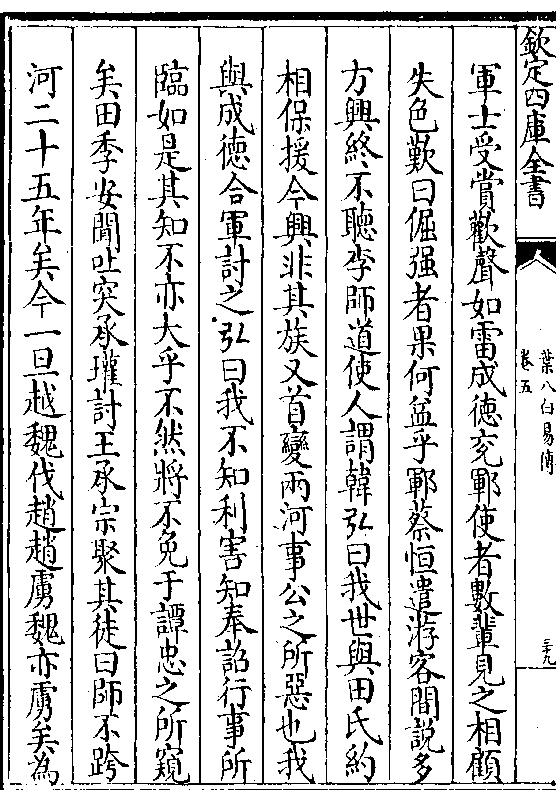 欽定四庫全書
葉八白易傳
卷五
三十九
軍士受賞歡聲如雷成徳兖鄆使者數輩見之相顧
失色歎曰倔强者果何益乎鄆蔡恒遣游客間説多
方興終不聽李師道使人謂韓弘曰我世與田氏約
相保援今興非其族又首變兩河事公之所惡也我
與成徳合軍討之弘曰我不知利害知奉詔行事所
臨如是其知不亦大乎不然將不免于譚忠之所窺
矣田季安聞吐突承璀討王承宗聚其徒曰師不跨
河二十五年矣今一旦越魏伐趙趙虜魏亦虜矣為